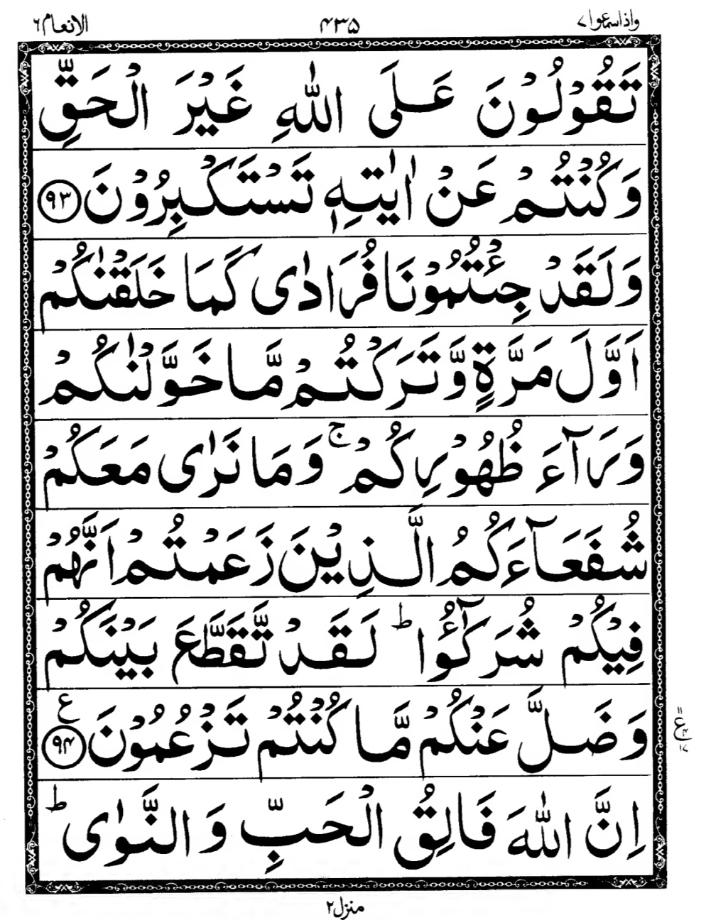 واذاسمعوا۷ ۴۳۵ الانعام۶
تَقُوْلُوْنَ عَلَى اللّٰهِ غَيْرَ الْحَقِّ
وَكُنْتُمْ عَنْ اٰيٰتِهٖ تَسْتَكْبِرُوْنَ ۹۳
وَلَقَدْ جِئْتُمُوْنَا فُرَادٰى كَمَا خَلَقْنٰكُمْ
اَوَّلَ مَرَّةٍ وَّتَرَكْتُمْ مَّا خَوَّلْنٰكُمْ
وَرَآءَ ظُهُوْرِكُمْ ۚ وَمَا نَرٰى مَعَكُمْ
شُفَعَآءَكُمُ الَّذِيْنَ زَعَمْتُمْ اَنَّهُمْ
فِيْكُمْ شُرَكٰٓؤُا ؕ لَقَدْ تَّقَطَّعَ بَيْنَكُمْ
وَضَلَّ عَنْكُمْ مَّا كُنْتُمْ تَزْعُمُوْنَ ۹۴ ع
۱۱ ع ۴ ۱۷
اِنَّ اللّٰهَ فَالِقُ الْحَبِّ وَالنَّوٰى ؕ
منزل۲